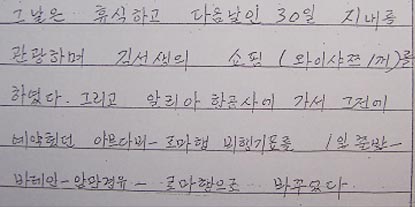 그날은 휴식하고 다음날인 30일 시내를
관광하며 김서생의 쇼핑 (와이샤쯔 1개)를
하였다. 그리고 알리아 항공사에 가서 그전에
예약했던 아브다비-로마행 비행기표를 1일 출발-
바레인-암만경유- 로마행으로 바꾸었다.